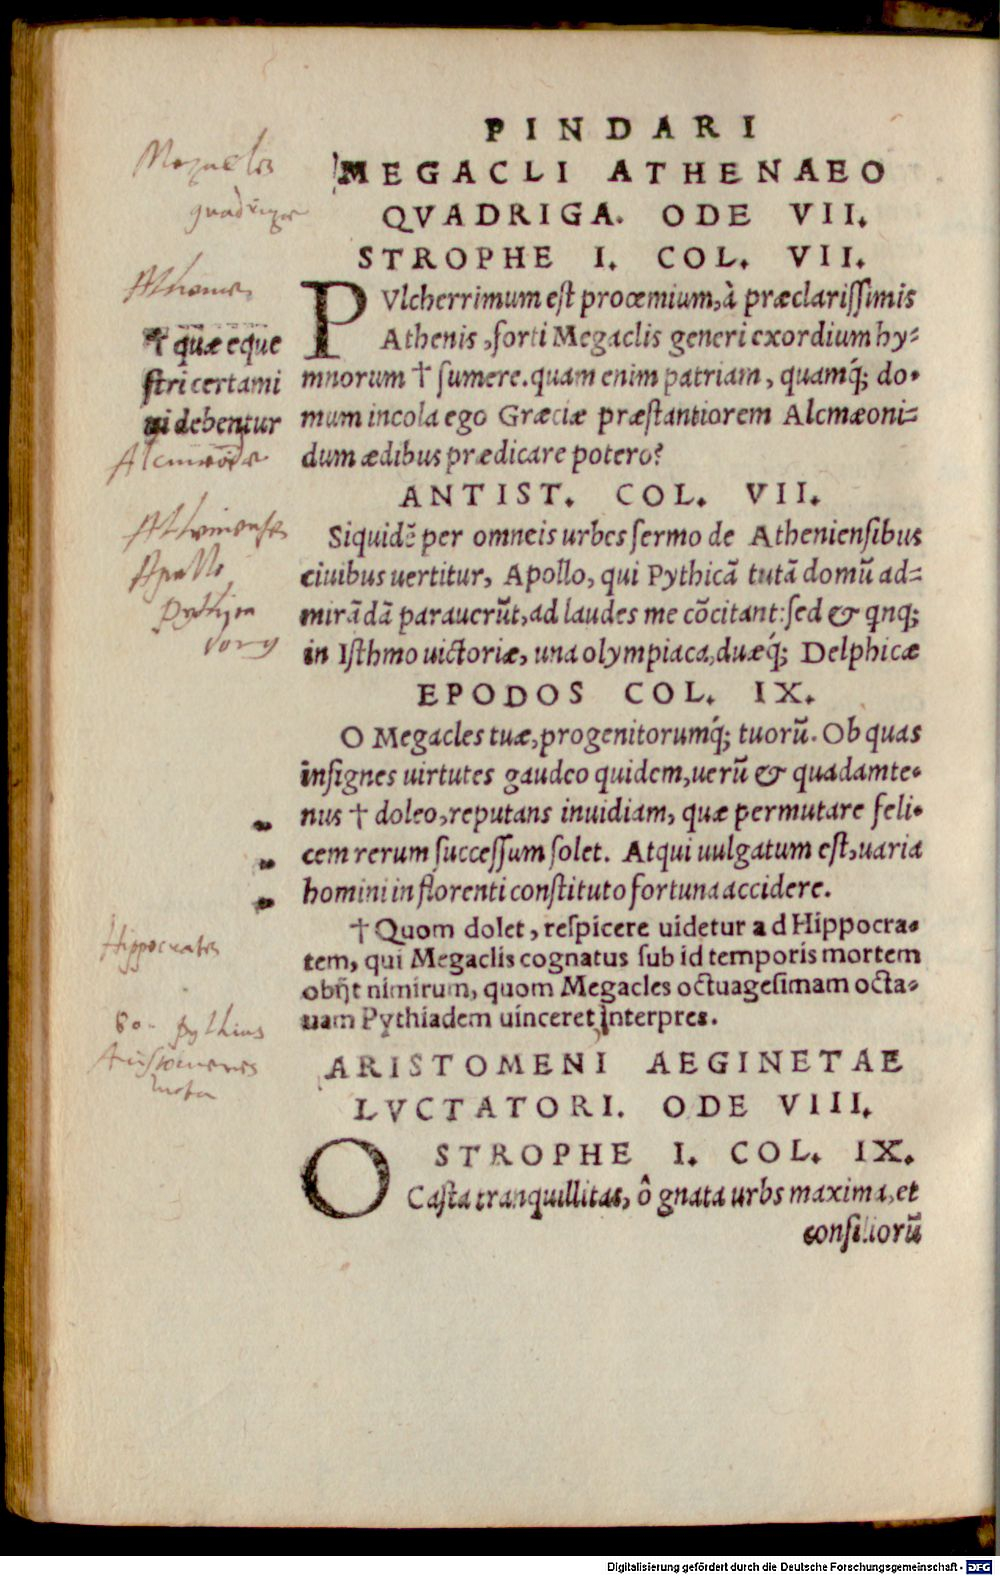 PINDARI
MEGACLI ATHENAEO
QVADRIGA. ODE VII.
STROPHE I. COL. VII.
PVlcherrimum est prooemium, à præclarissimis
Athenis, forti Megaclis generi exordium hy-
mnorum † sumere. quam enim patriam, quamq́; do-
mum incola ego Græciæ præstantiorem Alcmæoni-
dum ædibus prædicare potero?
ANTIST. COL. VII.
Siquidē per omneis urbes sermo de Atheniensibus
ciuibus uertitur, Apollo, qui Pythicā tutā domū ad-
mirādā parauerūt, ad laudes me cōcitant: sed & qnq;
in Isthmo uictoriæ, una olympiaca, duæq́; Delphicæ
EPODOS COL. IX.
O Megacles tuæ, progenitorumq́; tuorū. Ob quas
insignes uirtutes gaudeo quidem, uerū & quadamte-
nus † doleo, reputans inuidiam, quæ permutare feli-
cem rerum successum solet. Atqui uulgatum est, uaria
homini in florenti constituto fortuna accidere.
† Quom dolet, respicere uidetur ad Hippocra-
tem, qui Megaclis cognatus sub id temporis mortem
obijt nimirum, quom Megacles octuagesimam octa-
uam Pythiadem uinceret interpres.
ARISTOMENI AEGINETAE
LVCTATORI. ODE VIII.
STROPHE I. COL. IX.
O Casta tranquillitas, ô gnata urbs maxima, et
consiliorū
Megaclis
quadriga
Athenae
† quæ eque
stri certami
ni debentur
Alcmæonidæ
Athenienses
Apollo
Pythijca
Hippocrates
80. pythias
Aristomenes
Digitalisierung gefördert durch die Deutsche Forschungsgemeinschaft - DFG